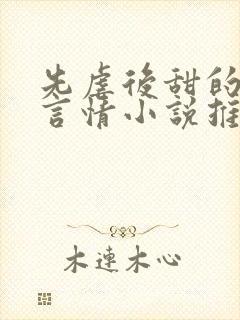 先虐後甜的
言情小說推
木連木心